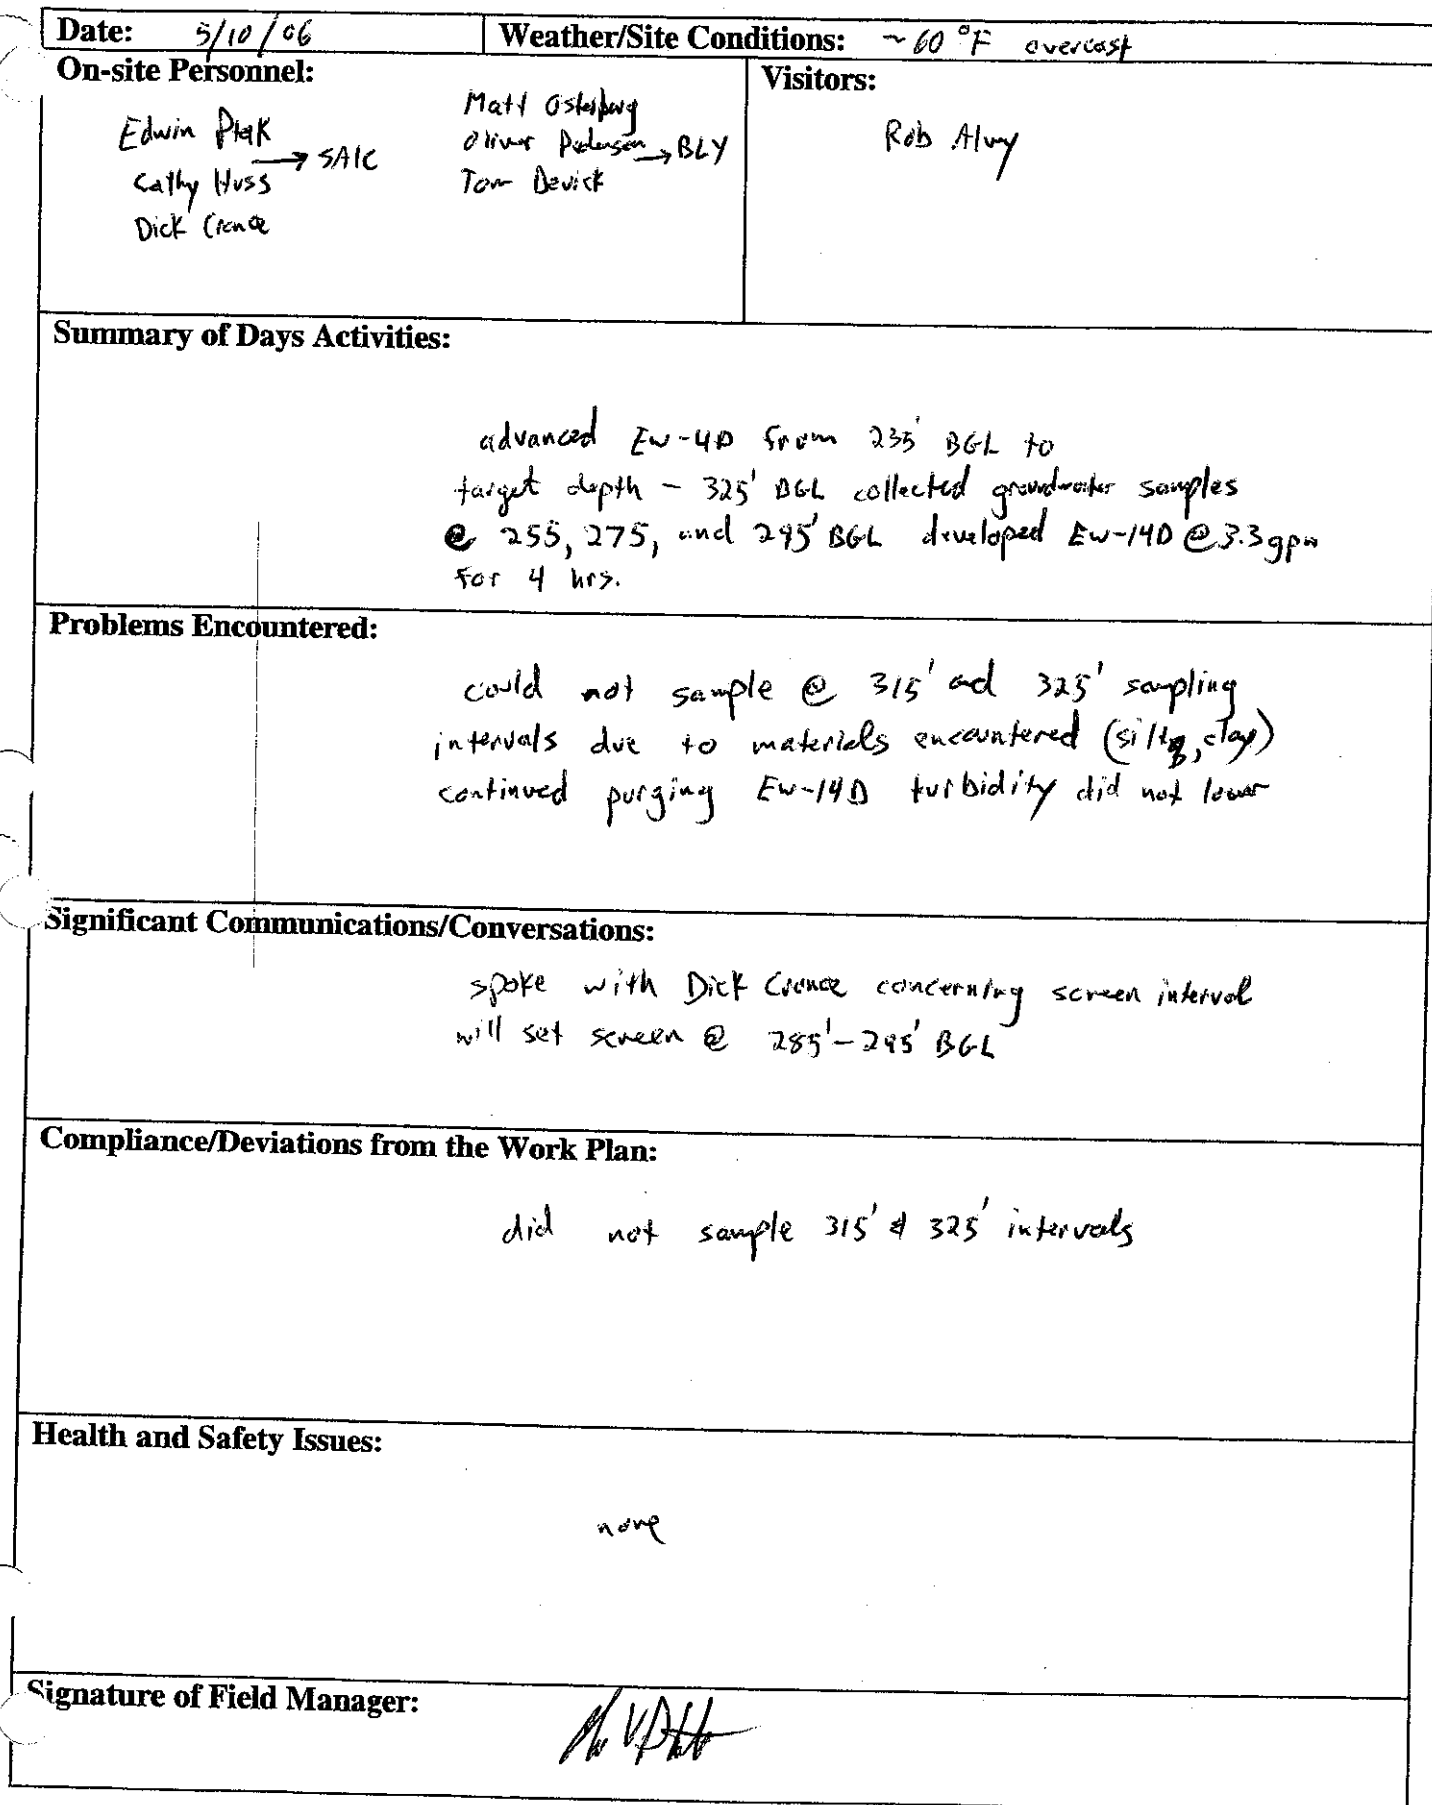 Date: 5/10/06
Weather/Site Conditions: ~60 °F overcast
On-site Personnel:
Edwin Ptak
Cathy Huss → SAIC
Dick Cronce
Matt Osterberg
Oliver Pedersen → BLY
Tom Devick
Visitors:
Rob Alvey
Summary of Days Activities:
advanced EW-4D from 235' BGL to
target depth - 325' BGL collected groundwater samples
@ 255, 275, and 295' BGL developed EW-14D @ 3.3 gpm
for 4 hrs.
Problems Encountered:
could not sample @ 315' ad 325' sampling
intervals due to materials encountered (silty, clay)
continued purging EW-14D turbidity did not lower
Significant Communications/Conversations:
spoke with Dick Cronce concerning screen interval
will set screen @ 285'-295' BGL
Compliance/Deviations from the Work Plan:
did not sample 315' & 325' intervals
Health and Safety Issues:
none
Signature of Field Manager: